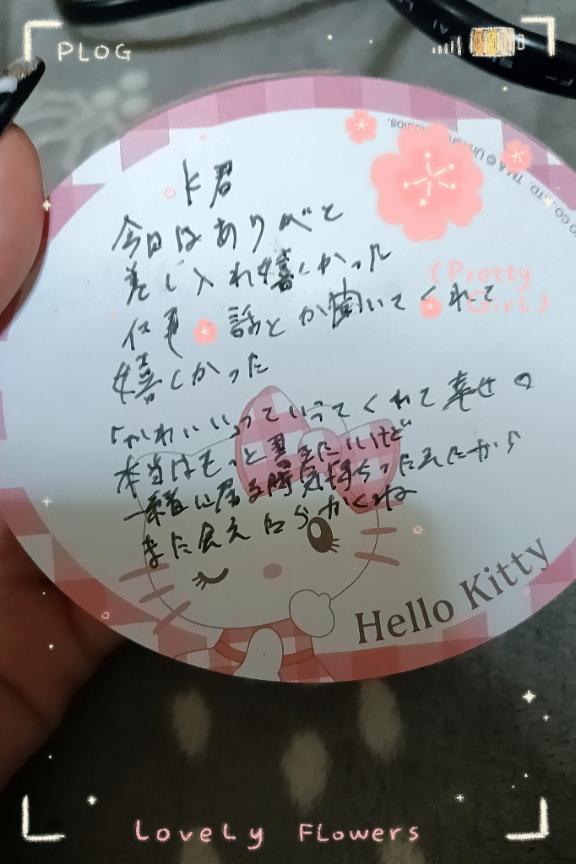 PLOG
k君
今日はありがと
差し入れ嬉しかった
仕事 話とか聞いてくれて
嬉しかった
「かわいいっていってくれて幸せ♡
本当はもっと書きたいけど
一緒に居る時気持ちつたえたから
また会えたらかくね
(Pretty
Girl)
Hello Kitty
Lovely Flowers